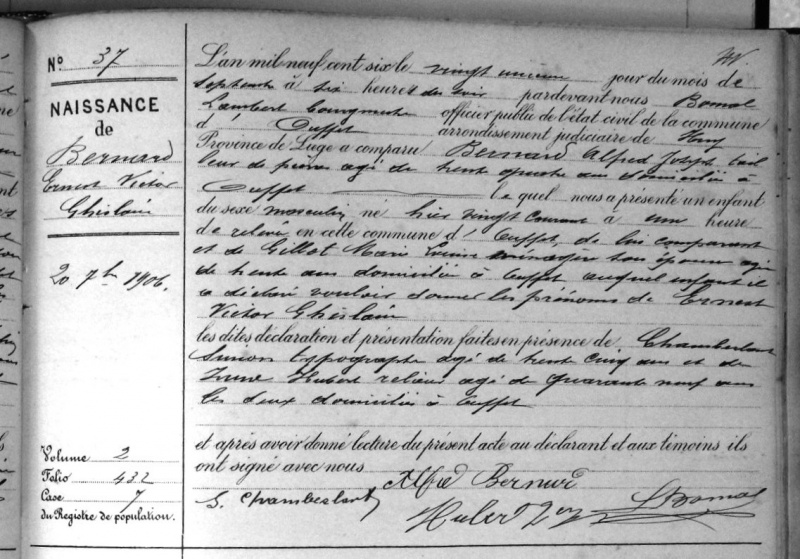 N° 37
NAISSANCE
de
Bernard
Ernest Victor
Ghislain
20 7bre 1906.
Volume 2
Folio 432
Case 7
du Registre de population.
L'an mil neuf cent six le vingt unième jour du mois de
Septembre à six heures du soir pardevant nous Bomal
Lambert officier public de l'état civil de la commune
d'Ouffet arrondissement judiciaire de Huy
Province de Liège a comparu Bernard Alfred Joseph tail
leur de pierres agé de trente quatre ans domicilié à
Ouffet lequel nous a présenté un enfant
du sexe masculin né hier vingt courant à une heure
de relevée en cette commune d'Ouffet, de lui comparant
et de Gillot Marie Louise ménagère son épouse agée
de trente ans domiciliée à Ouffet auquel enfant il
a déclaré vouloir donner les prénoms de Ernest
Victor Ghislain
les dites déclaration et présentation faites en présence de Chamberlant
Simon typographe agé de trente cinq ans et de
Hubert relieur agé de quarante neuf ans
les deux domiciliés à Ouffet
et après avoir donné lecture du présent acte au déclarant et aux témoins ils
ont signé avec nous
Alfred Bernard
S. Chamberlant
Hubert
L Bomal